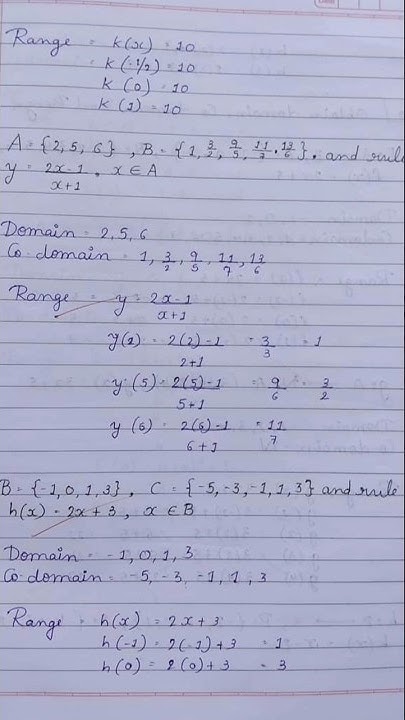 Range = k(x) = 10
= k(-1/2) = 10
k(0) = 10
k(1) = 10
A = {2, 5, 6}, B = {1, 3/2, 9/5, 11/7, 13/6}, and rule
y = 2x-1/x+1, x ∈ A
Domain = 2, 5, 6
Co-domain = 1, 3/2, 9/5, 11/7, 13/6
Range = y = 2x-1/x+1
y(2) = 2(2)-1/2+1 = 3/3 = 1
y(5) = 2(5)-1/5+1 = 9/6 = 3/2
y(6) = 2(6)-1/6+1 = 11/7
B = {-1, 0, 1, 3}, C = {-5, -3, -1, 1, 3} and rule
h(x) = 2x + 3, x ∈ B
Domain = -1, 0, 1, 3
Co-domain = -5, -3, -1, 1, 3
Range = h(x) = 2x + 3
h(-1) = 2(-1) + 3 = 1
h(0) = 2(0) + 3 = 3